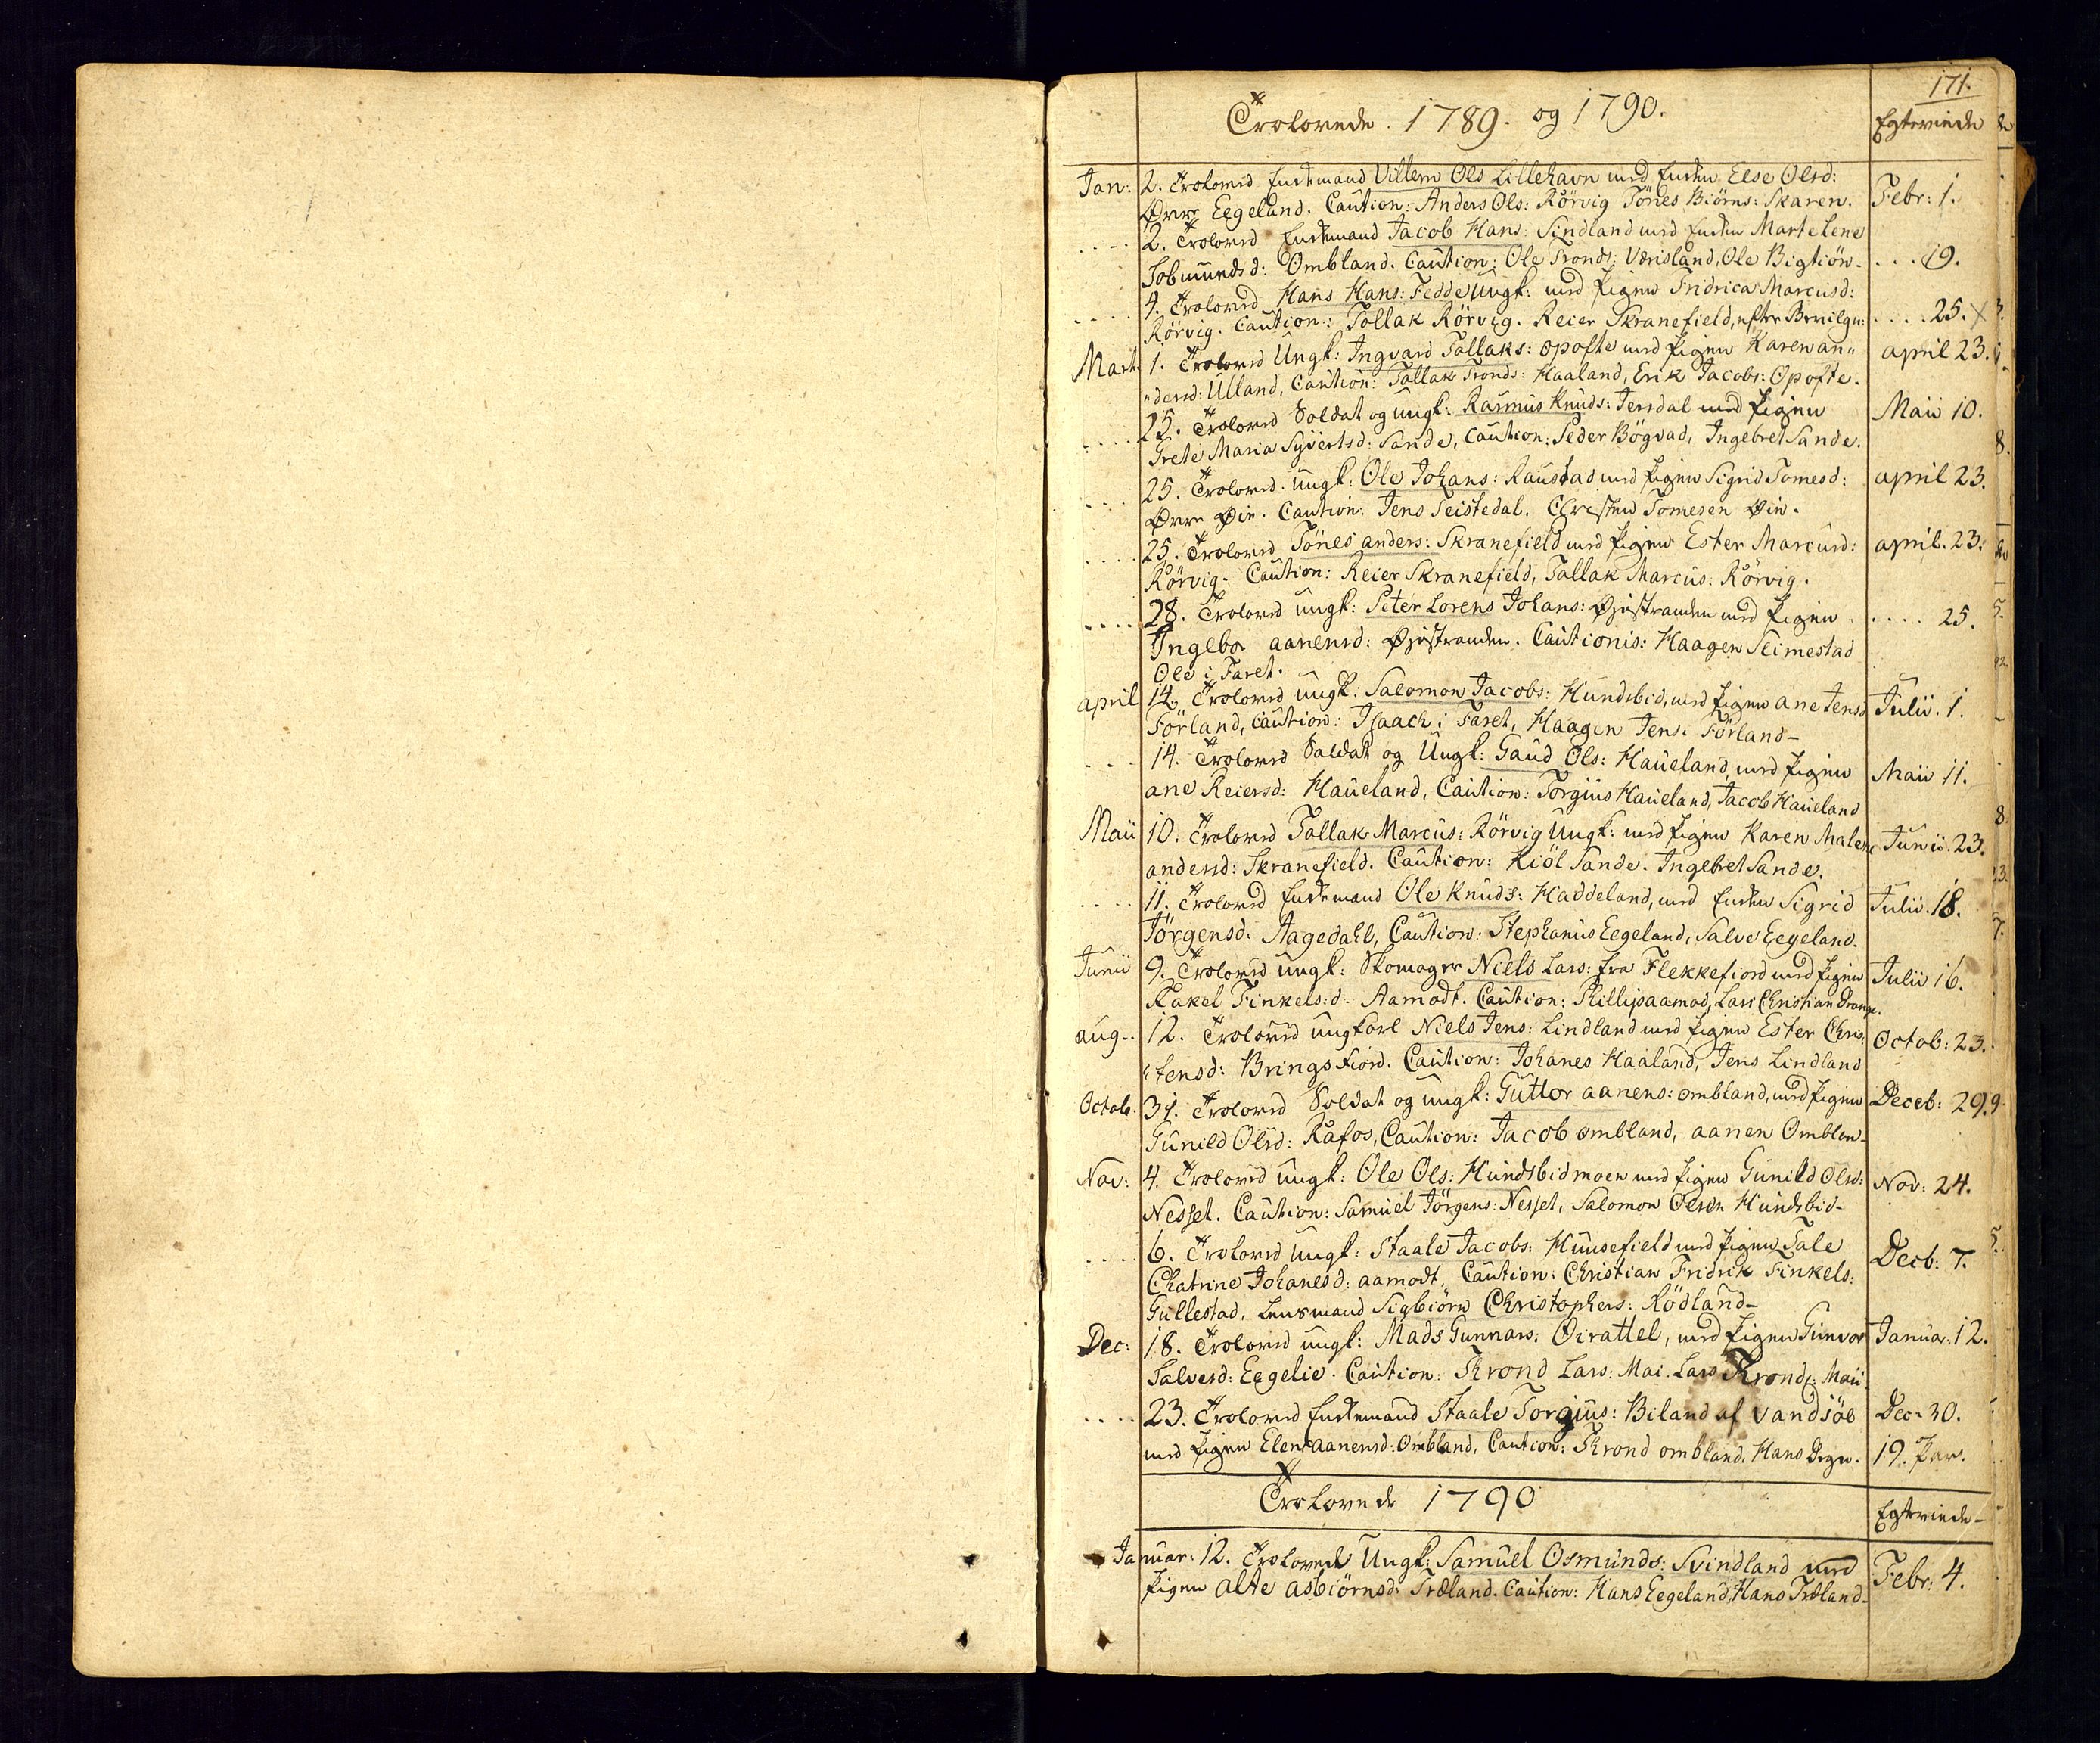 171.
Trolovede 1789. og 1790. Egteviede
Jan: 2. Troloved Enkemand Villem Ols Lillehavn med Enken Else Olsd: Febr: 1.
Øvre Eegeland. Caution: Anders Ols: Rörvig Tönes Biörns: Skaren.
.... 2. Troloved Enkemand Jacob Hans: Sindland med Enken Martelene
Tobmundsd: Ombland. Caution: Ole Tronds: Værisland, Ole Bigtiön. ... 19.
.... 4. Troloved Hans Hans: Fedde Ungk: med Pigen Fridrica Marcusd:
Rörvig. Caution: Tollak Rörvig. Reier Skranefield, efter Bevilgn: .... 25. X
Mart. 1. Troloved Ungk: Ingvard Tollaks: opofte med Pigen Karen an" april 23.
"dersd: Ulland, Caution: Tallak Tronds: Haaland, Erik Jacobs: Opofte.
.... 25. Troloved Soldat og ungk: Rasmus Knuds: Jersdal med Pigen Maii 10.
Grete Maria Syvertsd: Sande, Caution: Peder Bögvad, Ingebret Sande.
.... 25. Troloved. ungk: Ole Johans: Raustad med Pigen Sigrid Tomesd: april 23.
Øvre Øie. Caution. Jens Seistedal. Christen Tomesen Øie.
.... 25. Troloved Tönes anders: Skranefield med Pigen Ester Marcusd: april. 23:
Rörvig. Caution: Reier Skranefield, Tallak Marcus: Rörvig.
.... 28. Troloved ungk: Peter Lorens Johans: Øiestranden med Pigen .... 25.
Ingebor aanensd: Øiestranden. Cautionis: Haagen Seimestad
Ole i Faret.
april 14. Troloved ungk: Salomon Jacobs: Hundsbid, med Pigen ane Jensd Julii. 1.
Förland, Caution: Isaach i Faret, Haagen Jens: Förland-
.... 14. Troloved Soldat og Ungk: Gaud Ols: Haueland, med Pigen Maii 11.
ane Reiersd: Haueland, Caution: Torgius Haueland, Jacob Haueland
Maii 10. Troloved Tallak Marcus: Rörvig Ungk: med Pigen Karen Malene Junii. 23.
andersd: Skranefield. Caution: Kiöl Sande. Ingebret Sande.
.... 11. Troloved Enkemand Ole Knuds: Haddeland, med Enken Sigrid Julii. 18.
Jörgensd: Aagedahl, Caution: Stephanus Eegeland, Salve Eegeland.
Junii 9. Troloved ungk: Skomager Niels Lars: fra Flekkefiord med Pigen Julii 16.
Rakel Finkels:d: Aamodt. Caution: Phillip aamod, Lars Christian Drange.
aug.. 12. Troloved ungkarl Niels Jens: Lindland med Pigen Ester Chris: Octob: 23.
"tensd: Bringsfiord. Caution: Johanes Haaland, Jens Lindland
Octob. 31. Troloved Soldat og ungk: Guttor aanens: ombland, med Pigen Deceb: 29.
Gunild Olsd: Rafos, Caution: Jacob ombland, aanen Omblan-
Nov: 4. Trolovet ungk: Ole Ols: Hundsbid moen med Pigen Gunild Olsd: Nov: 24.
Nesset. Caution: Samuel Jörgens: Nesset, Salomon Olsen Hundsbid-
.... 6. Trolovet ungk: Staale Jacobs: Huusefield med Pigen Tale Decb: 7.
Chatrine Johanesd: aamodt, Caution: Christian Fridrik Finkels:
Gullestad, Lensmand Sigbiörn Christophers: Rödland-
Dec: 18. Trolovet ungk: Mads Gunnars: Oirattel, med Pigen Gunvor Janua: 12.
Salvesd: Eegelie. Caution: Trond Lars: Mai. Lars Trond: Maii
.... 23. Trolovet Enkemand Staale Torgius: Biland af vandsöe Dec: 30.
med Pigen Elen aanensd: Ombland, Caution: Trond ombland, Hans Degn. 19. Par.
Trolovede 1790 Egteviede-
Januar: 12. Trolovede Ungk: Samuel Osmunds: Svindland med Febr: 4.
Pigen alte asbiörnsd: Træland. Caution: Hans Eegeland, Hans Træland-